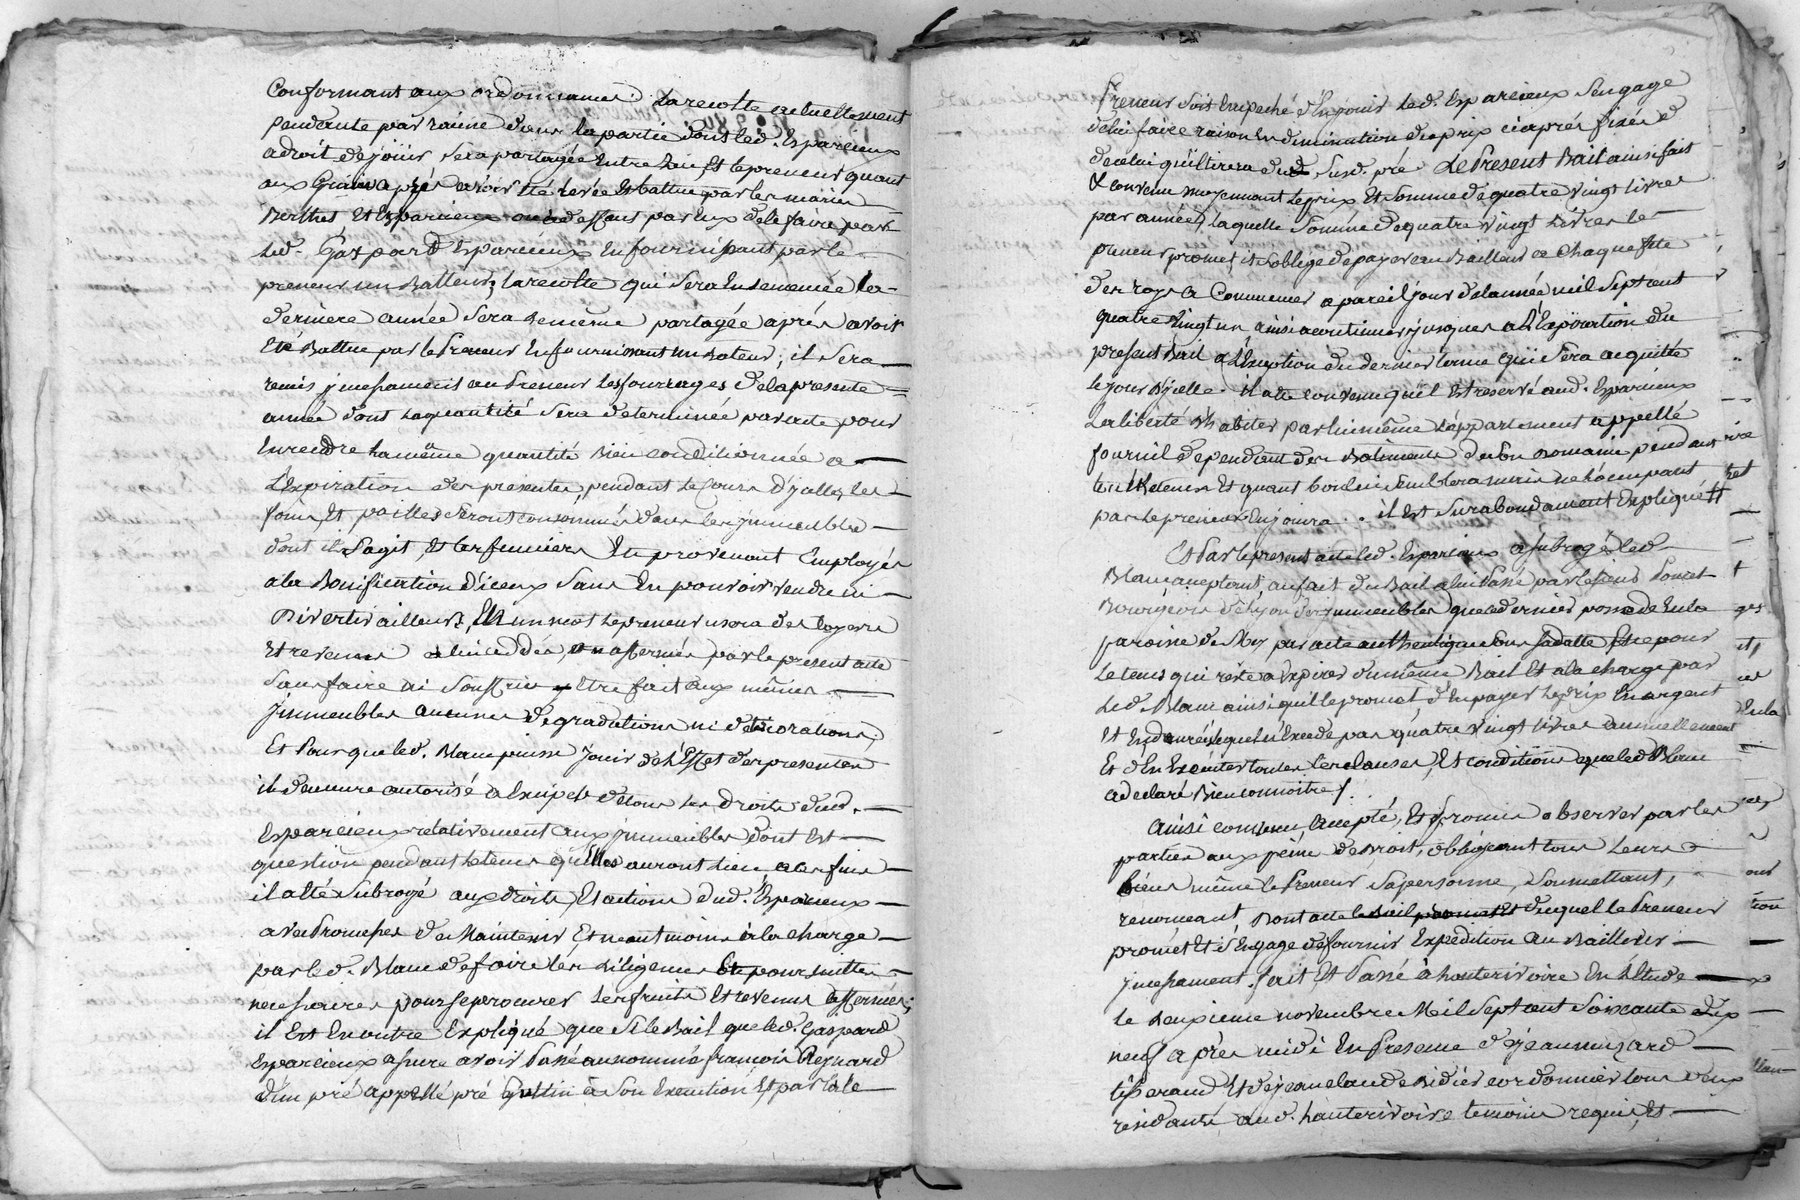 Conformant aux ordonnances. La recolte actuellement
pendante par racine dans la partie dont led. Esparcieux
a droit de joüir sera partagée entre Lui et le preneur quant
aux Grains après avoir été levée et battue par les mariés
Berthet et Esparcieux ou a deffaut par eux de le faire par
led. Gaspard Esparcieux en fournissant par le
preneur un Batteur; la recolte qui sera Ensemencée la
derniere année sera de même partagée aprés avoir
Eté Battue par le Preneur En fournissant un Bateur; il sera
remis jncessament au Preneur les fourrages de la presente
année dont la quantité sera determinée par acte pour
En rendre la même quantité Bien conditionnée a
L'Expiration des presentes, pendant le Cours d'jcelles les
foins Et pailles seront consommés dans les jmmeubles
dont il s'agit, Et les fumiers En provenant Employés
a la Bonification d'iceux sans En pouvoir vendre ni
Divertir ailleurs, En un mot le preneur usera des loyers
Et revenus affermés par le presentacte
sans faire ni souffrir Etre fait aux mêmes
jmmeubles aucunes degradations ni deteriorations;
Et Pour que led. Blanc puisse Jouir de l'Effet des presentes
il demeure autorisé a Exciper de tous les droits dud.
Esparcieux relativement aux jmmeubles dont Est
question pendant le tems qu'Elles auront lieu a ces fins
il a Eté Subrogé aux droits Et actions dud. Esparcieux
avec Promesses de Maintenir Et neantmoins à la charge
par led. Blanc de faire les diligences Et poursuittes
necessaires pour se procurer les fruits Et revenus affermés;
il Est En outre Expliqué que si le Bail que led. Gaspard
Esparcieux assure avoir Passé au nommé françois Reynard
d'un pré appellé pré à son Execution Et par là le
Preneur soit Empeché d'En jouir led. Esparcieux s'engage
de lui faire raison En diminution du prix ci aprés fixé
de celui qu'il tirera dud. Susd. pré Le Present Bail ainsi fait
& convenu moyennant le prix Et somme de quatre vingt livres
par année, laquelle somme de quatre vingt Livres le
preneur promet et s'oblige de payer au Bailleur a Chaque fete
des roys a Commencer a pareil jour de l'année mil Sept cent
quatre vingt un ainsi a continuer jusques a l'Expiration du
present Bail a l'Exception du dernier terme qui sera acquitté
le jour d'jcelle. il a Eté convenu qu'il Est reservé aud. Esparcieux
La liberté d'habiter par lui même l'appartement appellé
fournil dependant des Batiments dud. Domaine pendant
le tems Et quant bon lui semblera mais ne l'occupant
pas le preneur En jouira. il Est surabondament Expliqué
Et Par le present acte led. Esparcieux a subrogé led
Blanc acceptant, au fait du Bail a lui Passé par le sieur Poncet
Bourgeois de Lyon des jmmeubles que ce dernier possede En la
paroisse de par acte authentique sous sa datte Et ce pour
le tems qui reste a Expirer du même Bail Et a la charge par
led. Blanc ainsi qu'il le promet d'En payer le prix En argent
Et En denrées lequel n'Excede pas quatre vingt livres annuellement
Et d'En Executer toutes les clauses, Et conditions que led Blanc
a declaré Bien connoitre/.
Ainsi convenu, accepté, Et Promis observer par les
parties aux peines de Droit, obligeant tous Leurs
biens même le Preneur sa personne, soumettant,
renonceant, Dont acte duquel le Preneur
promet Et s'Engage de fournir Expedition au Bailleur
jncessament. fait Et Passé à hauterivoire En l'Etude
le deuxieme novembre Mil Sept cent soixante dix
neuf aprés midi En Presence de jean muzard
tisserand Et de jean claude didier cordonnier tous deux
residants aud. hauterivoire temoins requis, Et